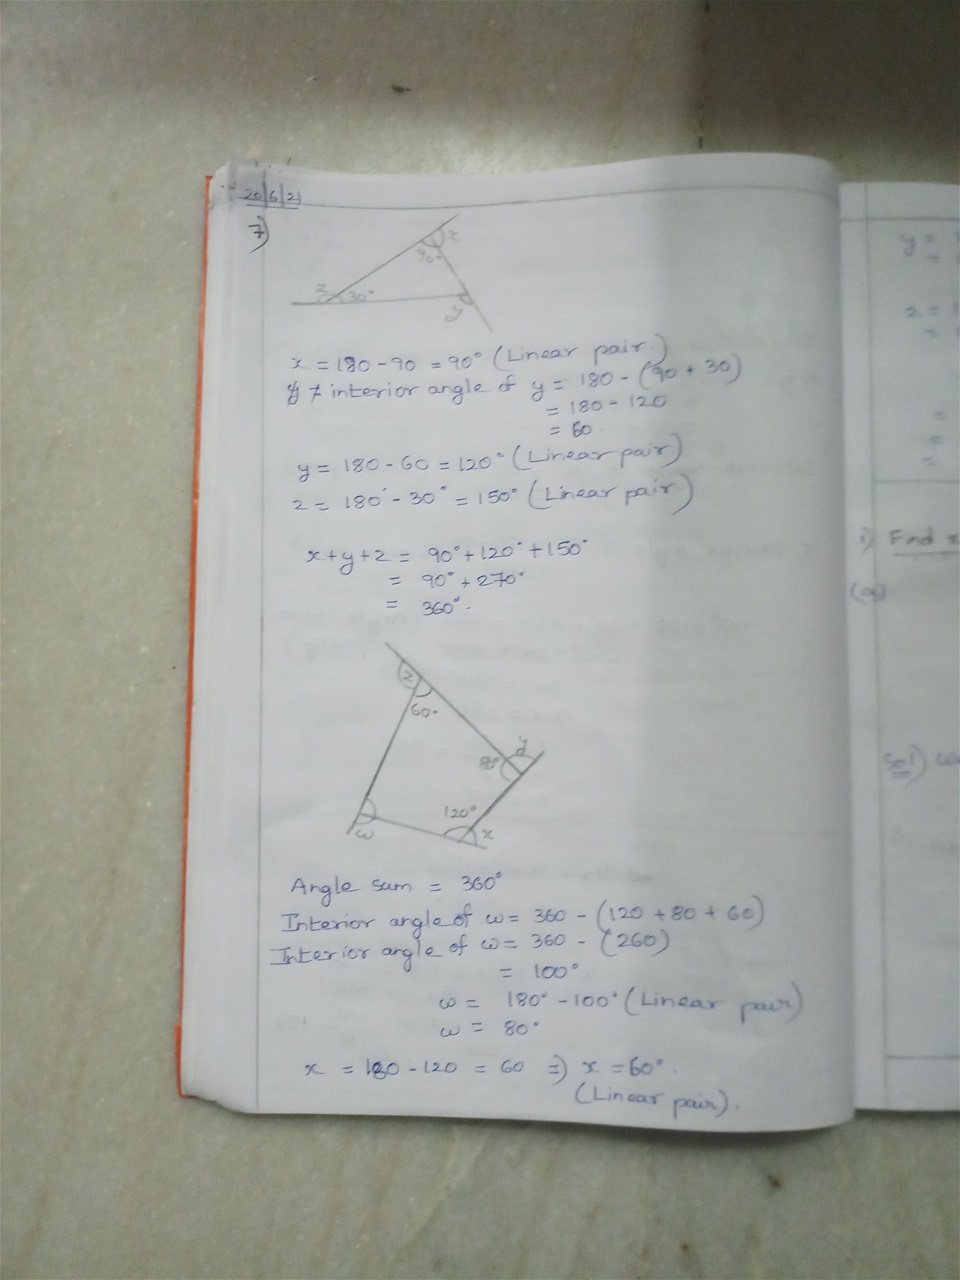 20/6/21
7)
x
90°
z 30°
y
x = 180 - 90 = 90° (Linear pair.)
interior angle of y = 180 - (90 + 30)
= 180 - 120
= 60.
y = 180 - 60 = 120° (Linear pair)
z = 180° - 30° = 150° (Linear pair)
x + y + z = 90° + 120° + 150°
= 90° + 270°
= 360°.
z
60°
y
80°
120°
x
w
Angle sum = 360°
Interior angle of w = 360 - (120 + 80 + 60)
Interior angle of w = 360 - (260)
= 100°
w = 180° - 100° (Linear pair)
w = 80°
x = 180 - 120 = 60 => x = 60°.
(Linear pair).
y =
=
z =
=
=
=
=
i) Find
(a)
Sol)